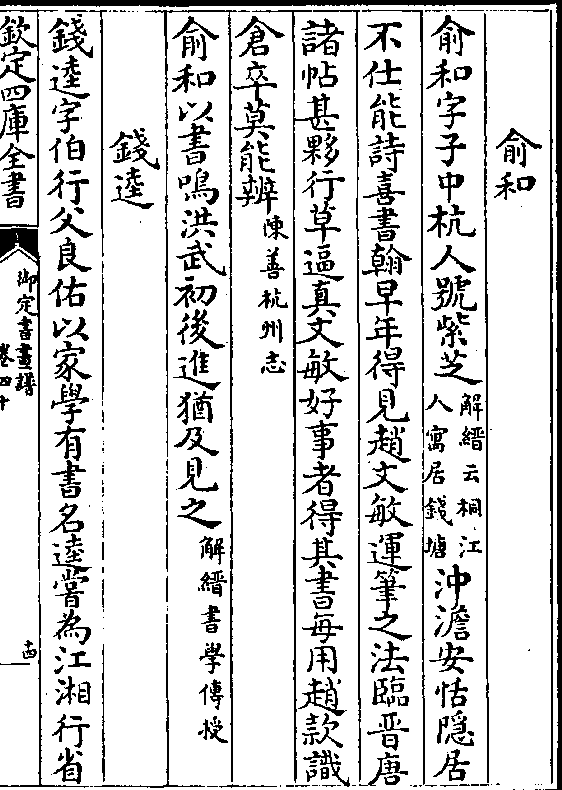 俞和
俞和字子中杭人號紫芝解縉云桐江人寓居錢塘沖澹安恬隱居
不仕能詩喜書翰早年得見趙文敏運筆之法臨晉唐
諸帖甚夥行草逼真文敏好事者得其書每用趙款識
倉卒莫能辨陳善杭州志
俞和以書鳴洪武初後進猶及見之解縉書學傳授
錢逵
錢逵字伯行父良佑以家學有書名逵嘗為江湘行省
欽定四庫全書
御定書畫譜
卷四十
十四